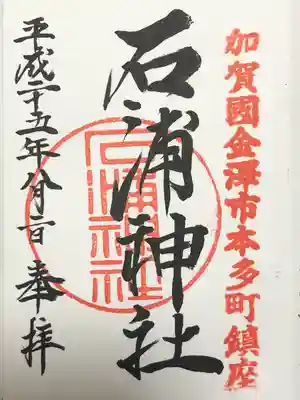 加賀國金澤市本多町鎮座
石浦神社
石浦神社
平成二十五年 奉拝